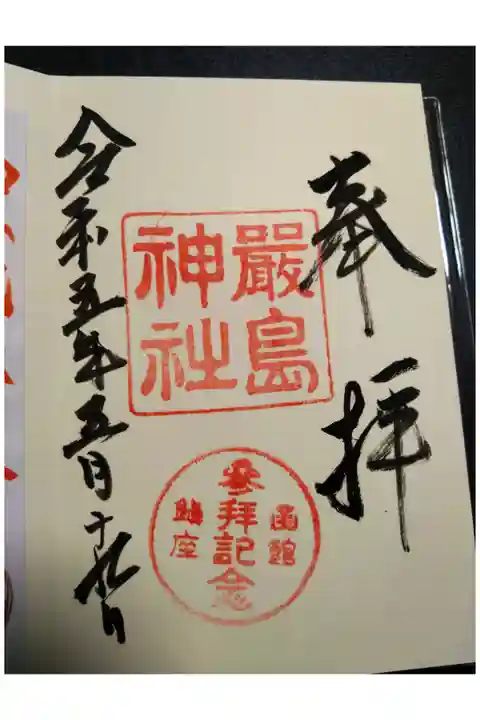 奉拝
嚴島
神社
函館
參拜記念
鎮座
令和五年五月十九日